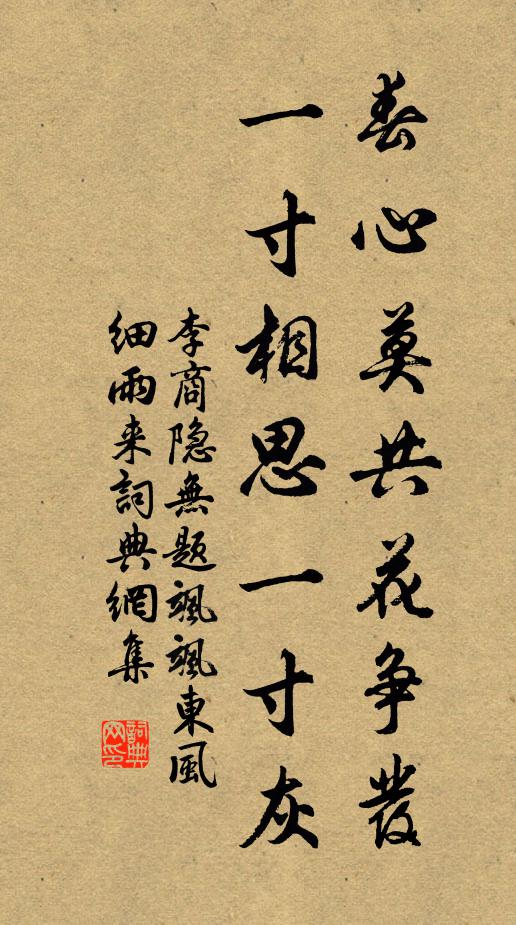 春心莫共花争發
一寸相思一寸灰
李商隐無题颯颯東風
细雨来詞典網集
詞典
网印